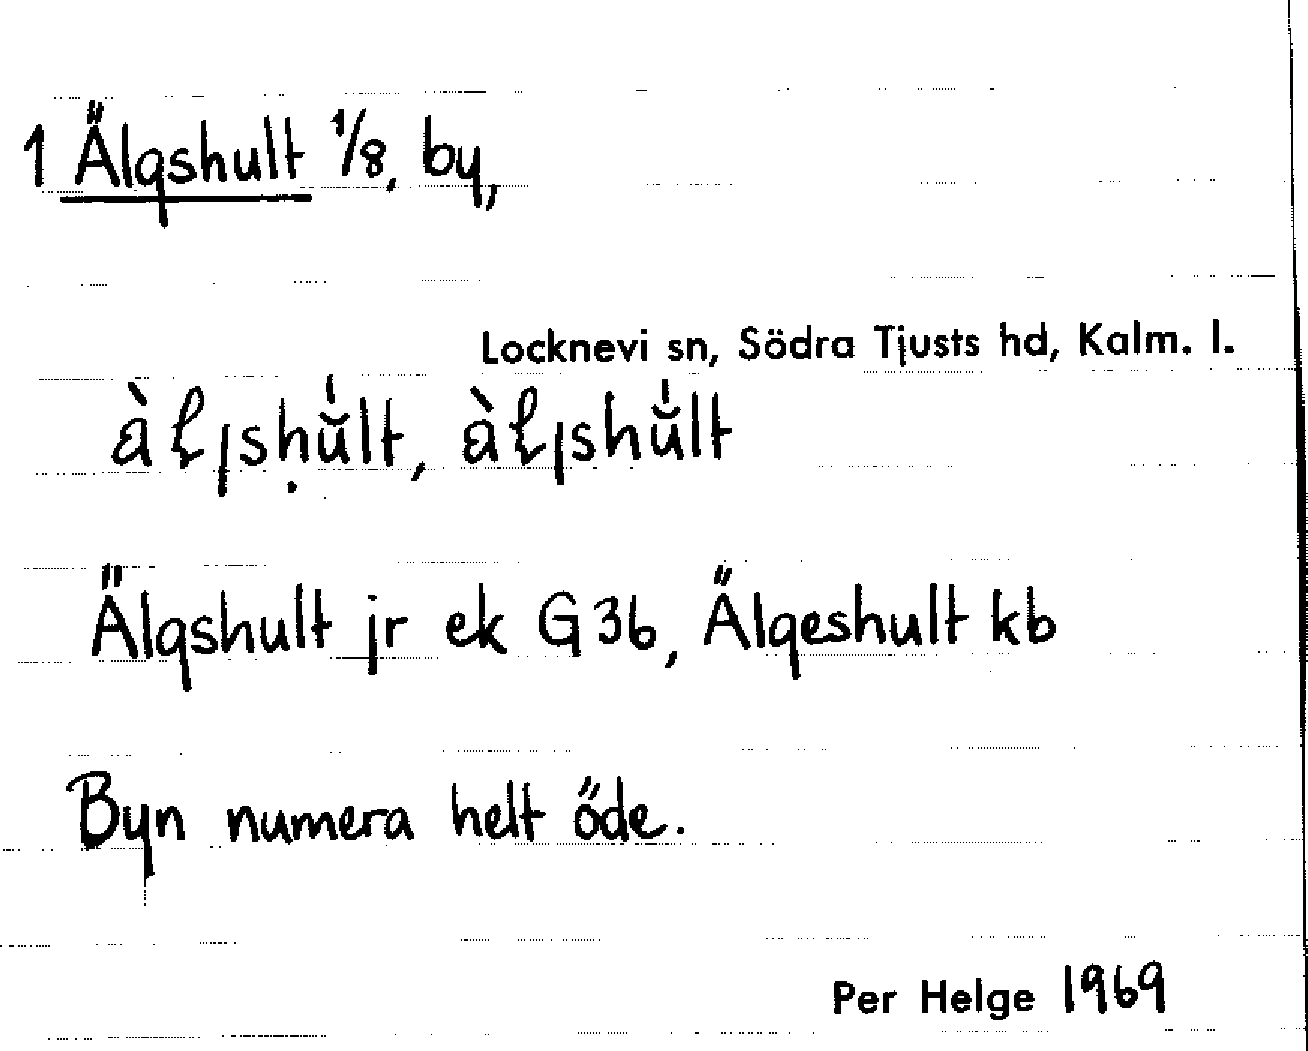 1 Älgshult 1/8, by,
Locknevi sn, Södra Tjusts hd, Kalm. l.
Älgshult jr ek G36, Älgeshult kb
Byn numera helt öde.
Per Helge 1969